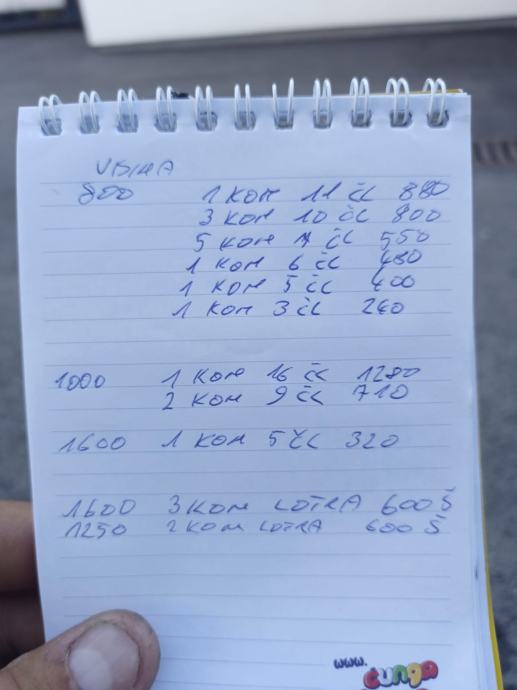 VISINA
800 1 KOM 11 ČL 880
3 KOM 10 ČL 800
5 KOM 7 ČL 550
1 KOM 6 ČL 480
1 KOM 5 ČL 400
1 KOM 3 ČL 240
1000 1 KOM 16 ČL 1280
2 KOM 9 ČL 710
1600 1 KOM 5 ČL 320
1600 3 KOM LOTRA 600 Š
1250 2 KOM LOTRA 600 Š
www.
čunga